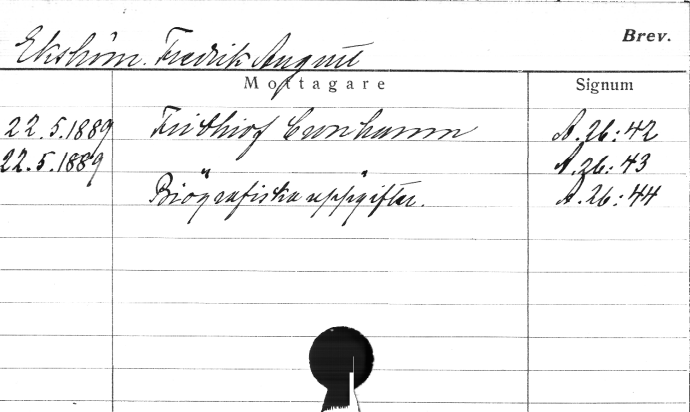 Brev.
Ekström. Fredrik August
Mottagare Signum
22.5.1889 Frithiof Cronhamn A.26:42
22.5.1889 " " A.26:43
Biografiska uppgifter. A.26:44